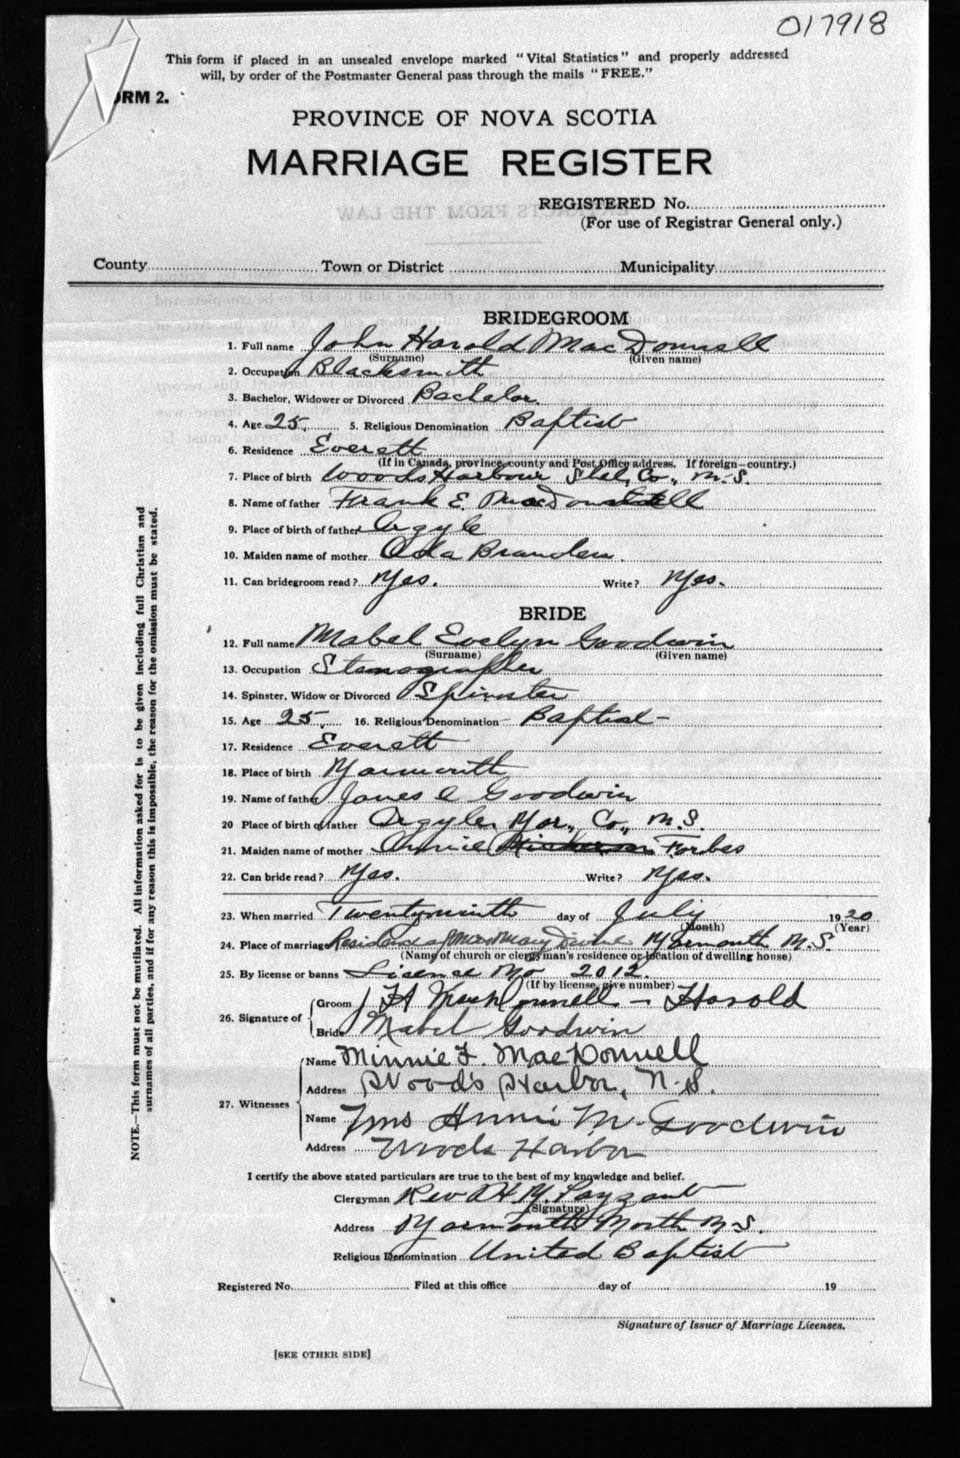 017918
This form if placed in an unsealed envelope marked "Vital Statistics" and properly addressed
will, by order of the Postmaster General pass through the mails "FREE."
ORM 2.
PROVINCE OF NOVA SCOTIA
MARRIAGE REGISTER
REGISTERED No.
(For use of Registrar General only.)
County Town or District Municipality
BRIDEGROOM
1. Full name John Harold MacDonnell
(Surname) (Given name)
2. Occupation Blacksmith
3. Bachelor, Widower or Divorced Bachelor
4. Age 25. 5. Religious Denomination Baptist
6. Residence Everett
(If in Canada, province, county and Post Office address. If foreign—country.)
7. Place of birth Woods Harbour Shel. Co., N.S.
8. Name of father Frank E.
9. Place of birth of father Argyle
10. Maiden name of mother Ada
11. Can bridegroom read? Yes. Write? Yes.
BRIDE
12. Full name Mabel Evelyn Goodwin
(Surname) (Given name)
13. Occupation Stenographer
14. Spinster, Widow or Divorced Spinster
15. Age 25, 16. Religious Denomination Baptist
17. Residence Everett
18. Place of birth Yarmouth
19. Name of father Goodwin
20 Place of birth of father Argyle, Yar., Co., N.S.
21. Maiden name of mother Annie Forbes
22. Can bride read? Yes. Write? Yes.
23. When married Twentyninth day of July 1920
(Month) (Year)
24. Place of marriage Residence of Yarmouth N.S.
(Name of church or clergyman's residence or location of dwelling house)
25. By license or banns License No 2012.
(If by license, give number)
26. Signature of Groom J H MacDonnell - Harold
Bride Mabel Goodwin
27. Witnesses Name Minnie F. MacDonnell
Address Wood's Harbor, N.S.
Name Mrs Annie M. Goodwin
Address Woods Harbor
I certify the above stated particulars are true to the best of my knowledge and belief.
Clergyman Rev Payzant
(Signature)
Address Yarmouth North N.S.
Religious Denomination United Baptist
Registered No. Filed at this office day of 19
Signature of Issuer of Marriage Licenses.
[SEE OTHER SIDE]
NOTE.—This form must not be mutilated. All information asked for is to be given including full Christian and
surnames of all parties, and if for any reason this is impossible, the reason for the omission must be stated.